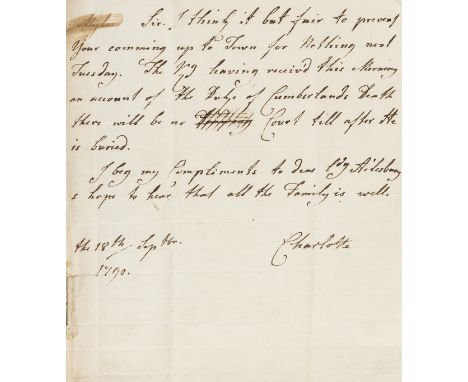 Sir. I think it but fair to prevent
Your comming up to Town for Nothing next
Tuesday. The Kg having receiv'd this Morning
an account of The Duke of Cumberlands Death
there will be no Court till after He
is buried.
I beg my Compliments to dear Ldy Ailesbury
& hope to hear that all the Family is well.
the 18th Septbr.
1790.
Charlotte